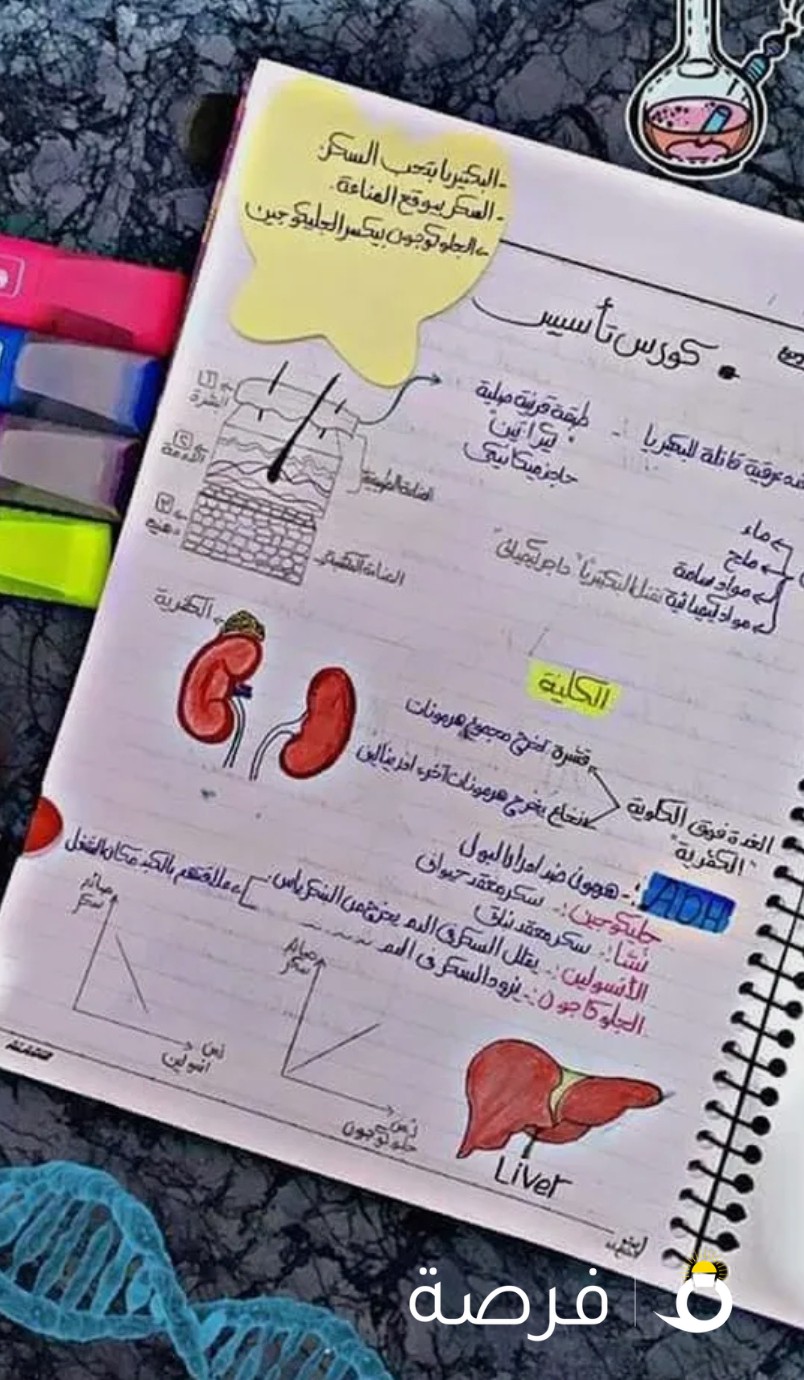 - البكتيريا بتحب السكر.
- السكر بيوقع المناعة.
- الجلوكوجون بيكسر الجليكوجين
كورس تأسيس
طبقة قرنية صلبة
"كيراتين"
حاجز ميكانيكي
عرقية قاتلة للبكتيريا
ماء
ملح
مواد سامة
مواد كيميائية تقتل البكتيريا "حاجز كيميائي"
١
البشرة
٢
الأدمة
٣
الكظرية
الكلية
الغدة فوق الكلوية
"الكظرية"
قشرة تخرج مجموع هرمونات
نخاع يخرج هرمونات أخرى ادرينالين
ADH :- هرمون ضد ادرار البول
جليكوجين :- سكر معقد حيواني
نشا :- سكر معقد نباتي
الأنسولين :- يقلل السكر في الدم يخرج من البنكرياس.
الجلوكاجون :- يزود السكر في الدم
علاقتهم بالكبد مكان الشغل
سكر
زمن
انسولين
سكر
زمن
جلوكوجون
Liver
فرصة